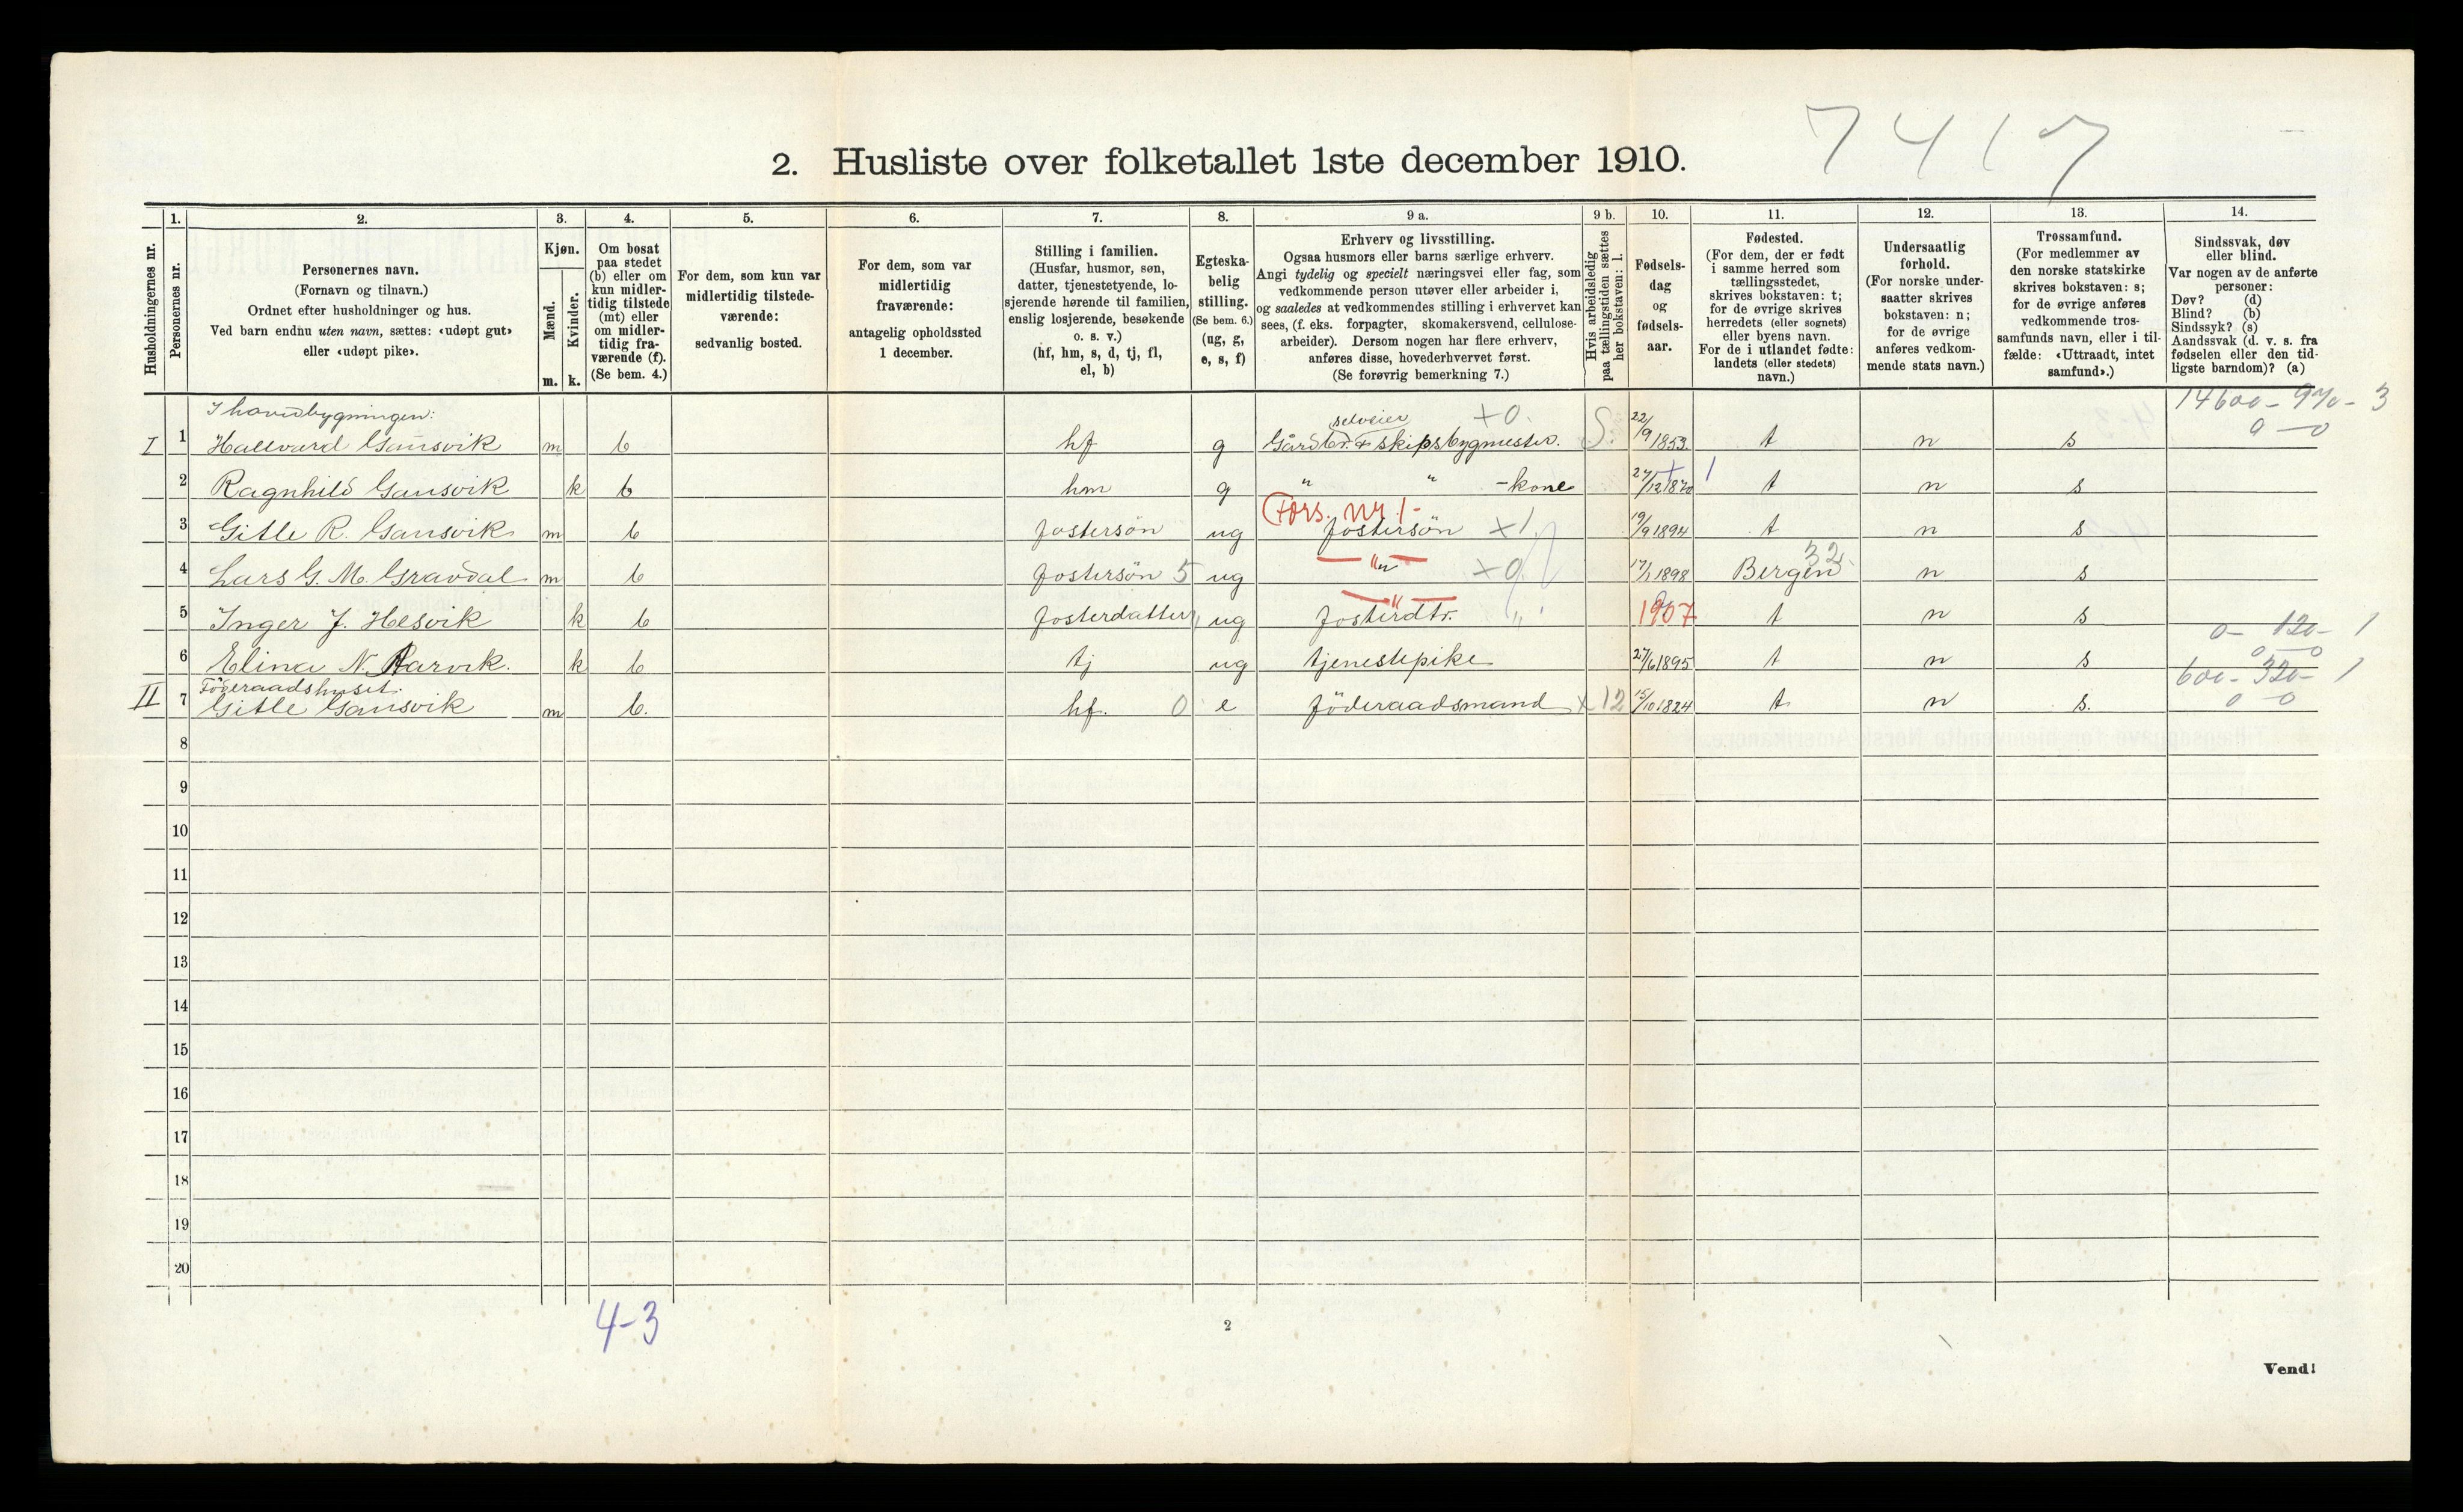 7417
2. Husliste over folketallet 1ste december 1910.
Husholdningernes nr.
1. Personernes nr.
2. Personernes navn.
(Fornavn og tilnavn.)
Ordnet efter husholdninger og hus.
Ved barn endnu uten navn, sættes: «udøpt gut»
eller «udøpt pike».
3. Kjøn.
Mænd. m.
Kvinder. k.
4. Om bosat
paa stedet
(b) eller om
kun midler-
tidig tilstede
(mt) eller
om midler-
tidig fra-
værende (f).
(Se bem. 4.)
5. For dem, som kun var
midlertidig tilstede-
værende:
sedvanlig bosted.
6. For dem, som var
midlertidig
fraværende:
antagelig opholdssted
1 december.
7. Stilling i familien.
(Husfar, husmor, søn,
datter, tjenestetyende, lo-
sjerende hørende til familien,
enslig losjerende, besøkende
o. s. v.)
(hf, hm, s, d, tj, fl,
el, b)
8. Egteska-
belig
stilling.
(Se bem. 6.)
(ug, g,
e, s, f)
9 a. Erhverv og livsstilling.
Ogsaa husmors eller barns særlige erhverv.
Angi tydelig og specielt næringsvei eller fag, som
vedkommende person utøver eller arbeider i,
og saaledes at vedkommendes stilling i erhvervet kan
sees, (f. eks. forpagter, skomakersvend, cellulose-
arbeider). Dersom nogen har flere erhverv,
anføres disse, hovederhvervet først.
(Se forøvrig bemerkning 7.)
9 b. Hvis arbeidsledig
paa tællingstiden sættes
her bokstaven: l.
10. Fødsels-
dag
og
fødsels-
aar.
11. Fødested.
(For dem, der er født
i samme herred som
tællingsstedet,
skrives bokstaven: t;
for de øvrige skrives
herredets (eller sognets)
eller byens navn.
For de i utlandet fødte:
landets (eller stedets)
navn.)
12. Undersaatlig
forhold.
(For norske under-
saatter skrives
bokstaven: n;
for de øvrige
anføres vedkom-
mende stats navn.)
13. Trossamfund.
(For medlemmer av
den norske statskirke
skrives bokstaven: s;
for de øvrige anføres
vedkommende tros-
samfunds navn, eller i til-
fælde: «Uttraadt, intet
samfund».)
14. Sindssvak, døv
eller blind.
Var nogen av de anførte
personer:
Døv? (d)
Blind? (b)
Sindssyk? (s)
Aandssvak (d. v. s. fra
fødselen eller den tid-
ligste barndom)? (a)
I hovedbygningen: selveier +0. 14600 - 970 - 3
I 1 Hallvard Gausvik m b hf g Gårdbr. & skipsbygmester. S. 22/9 1853. t n s 0 — 0
2 Ragnhild Gausvik k b hm g " " -kone 27/12 1870 1 t n s
Fors. nr. 1 -
3 Gitle R. Gausvik m b fostersön ug fostersön +1 19/9 1894 t n s
4 Lars G. M. Gravdal m b fostersön 5 ug — " — +0 17/1 1898 Bergen 32 n s
5 Inger J. Hesvik k b fosterdatter ug — " — fosterdtr. " 1907 t n s
0 - 120 - 1
6 Elina N. Aarvik. k b tj ug tjenestepike 27/6 1895 t n s 0 — 0
Föderaadshuset. 600 - 320 - 1
II 7 Gitle Gausvik m b. hf. 0 e föderaadsmand x 12 15/10 1824 t n s. 0 — 0
8
9
10
11
12
13
14
15
16
17
18
19
20
4-3
2
Vend!